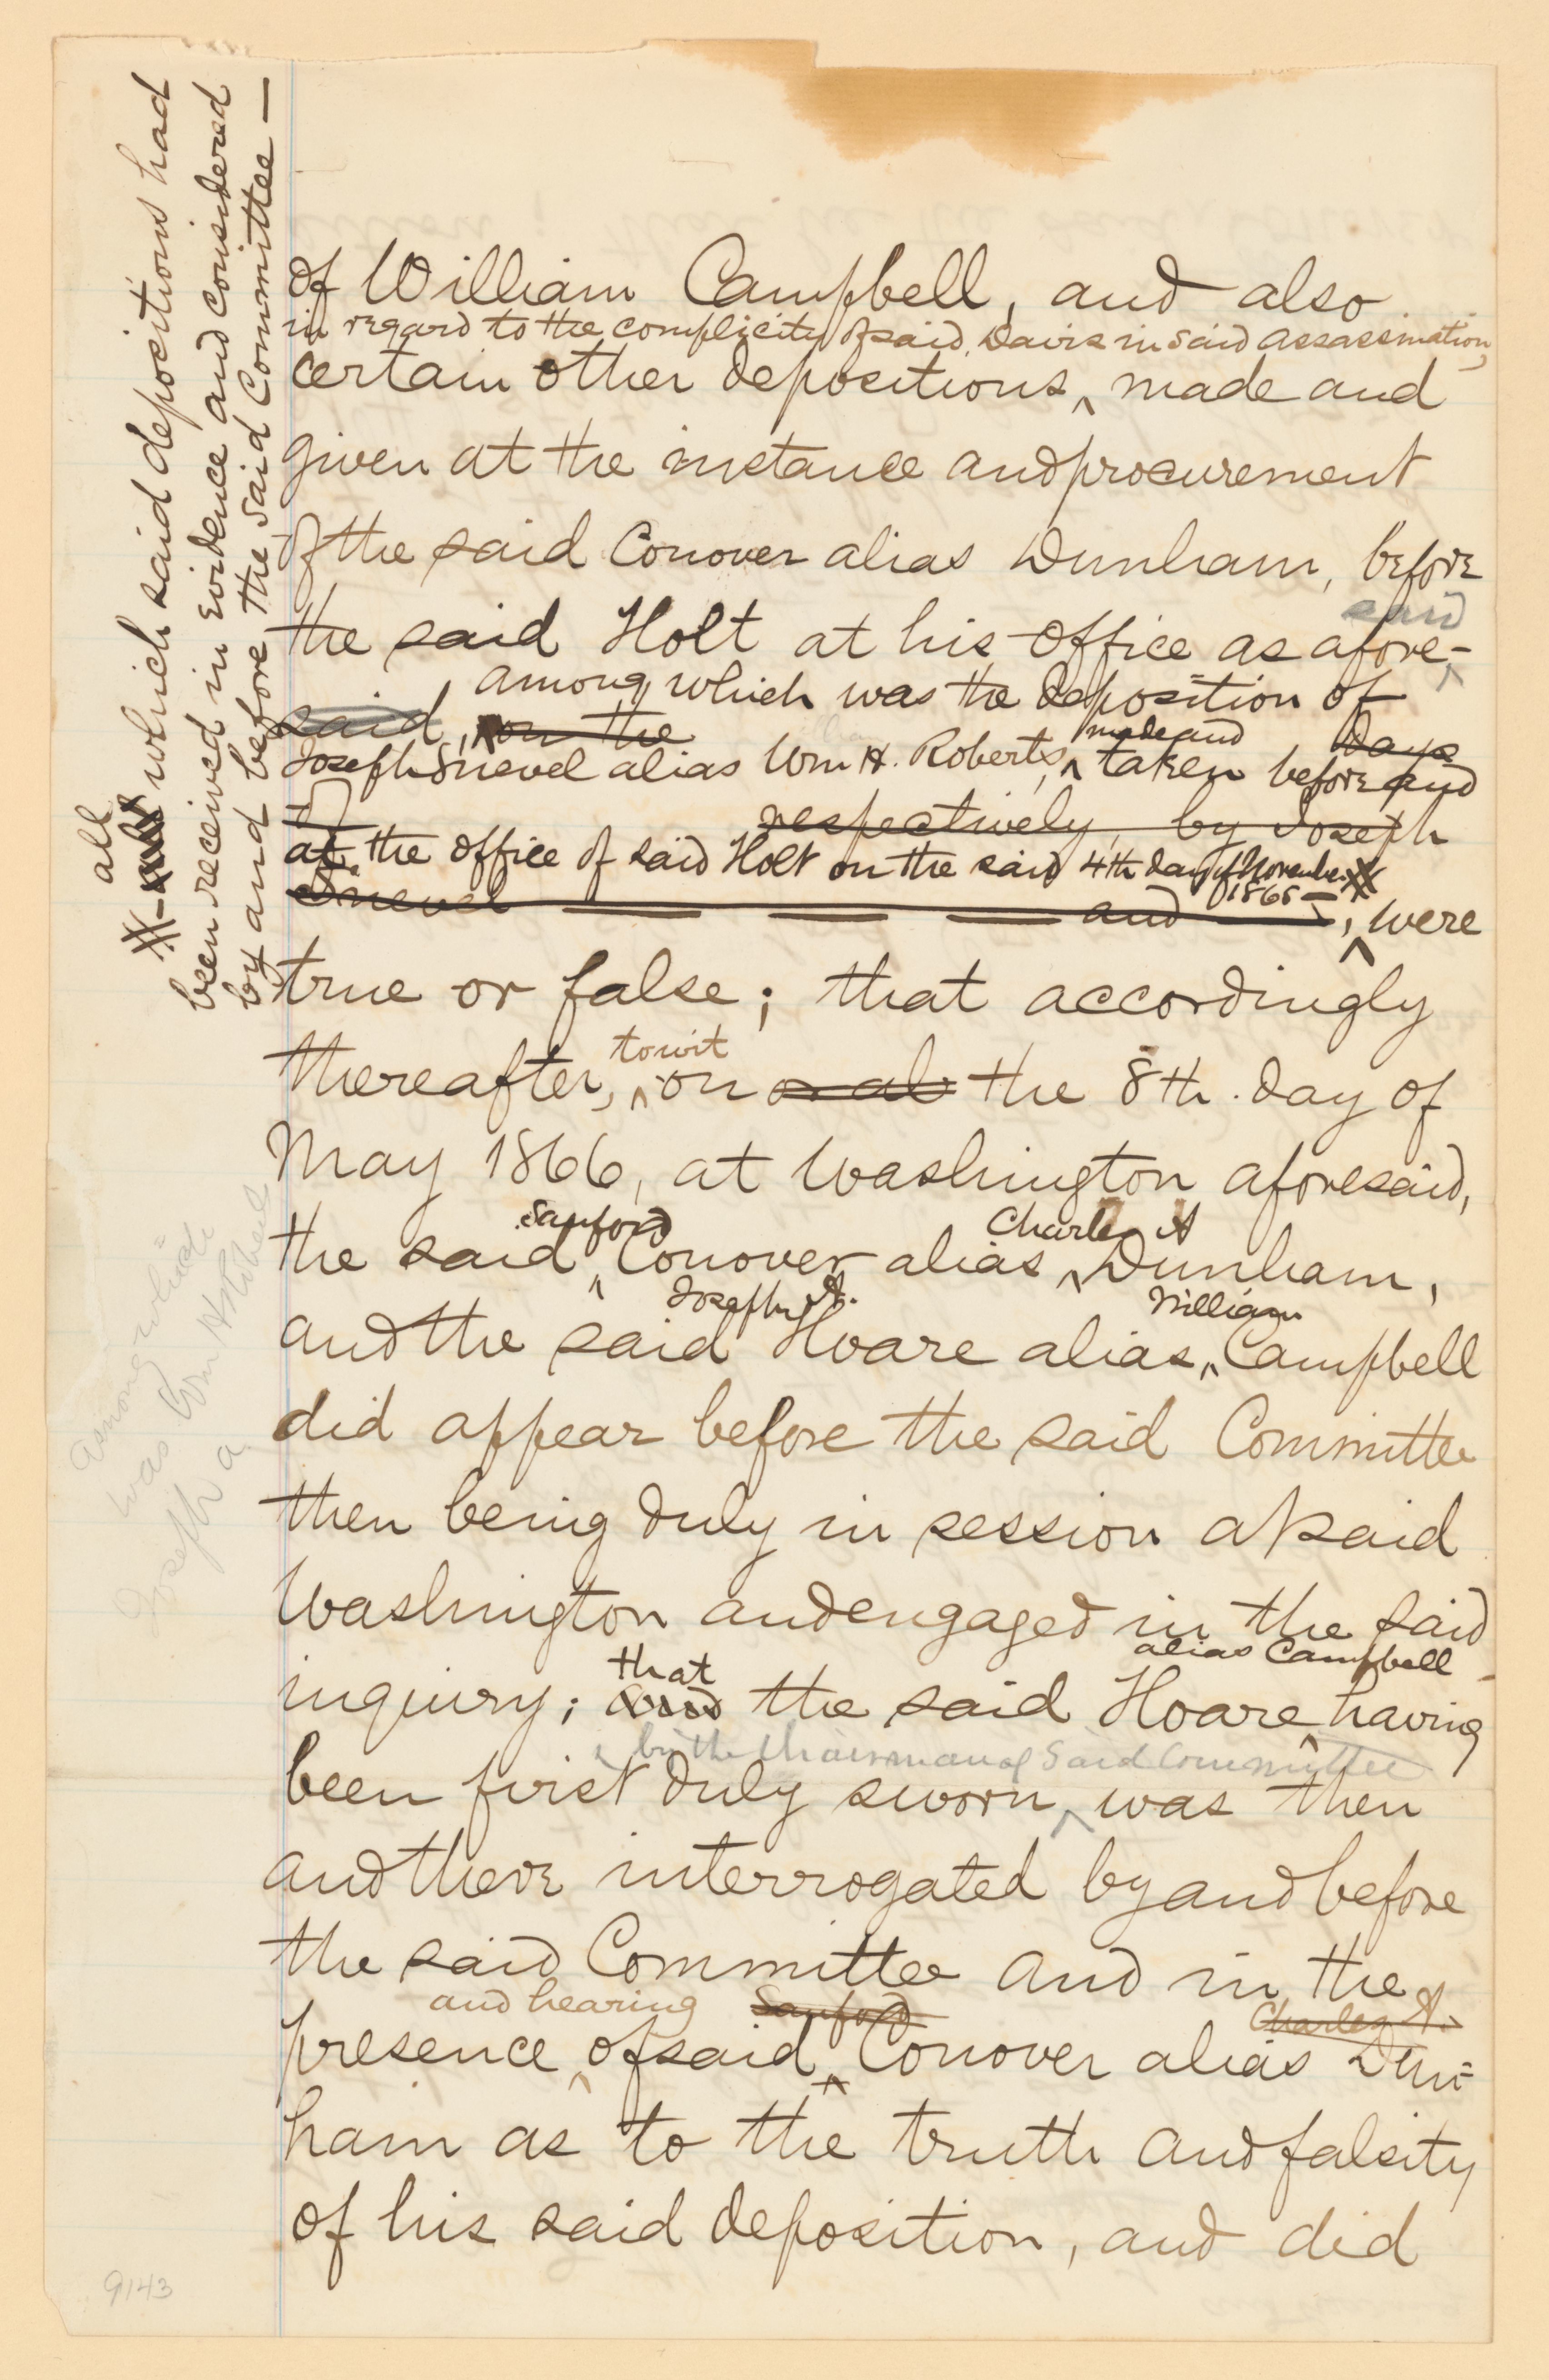 of William Campbell, and also
in regard to the complicity of said Davis in said assassination,
certain other depositions, made and
given at the instance and procurement
of the said Conover alias Dunham, before
the said Holt at his office as afore-
said
among which was the deposition of
said, on the
made and
Days
Joseph Snevel alias Wm H. Roberts, taken before and
respectively, by Joseph
at the office of said Holt on the said 4th day of November
1865
Snevel and , were
true or false; that accordingly
to wit
thereafter, on the 8th. day of
May 1866, at Washington aforesaid,
Sanford Charles A
the said Conover alias Dunham,
Joseph A. William
and the said Hoare alias Campbell
did appear before the said Committee
then being duly in session at said
Washington and engaged in the said
that alias Campbell
inquiry; and the said Hoare having
by the Chairman of Said Committee
been first duly sworn, was then
and there interrogated by and before
the said Committee and in the
and hearing Sanford Charles A.
presence of said Conover alias Dun-
ham as to the truth and falsity
of his said deposition, and did
all
which said depositions had
been received in evidence and considered
by and before the said Committee —
among which
was Wm H
Joseph a
9143